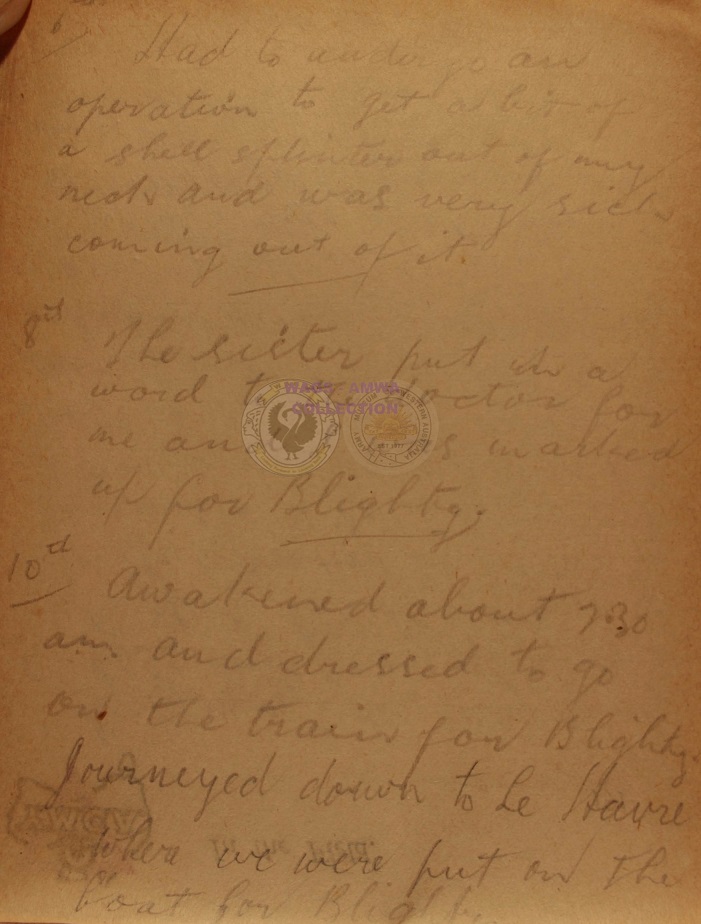 6
Had to undergo an
operation to get a bit of
a shell splinter out of my
neck and was very sick
coming out of it.
8th
The sister put in a
word to the doctor for
me and was marked
up for Blighty.
10d
Awakened about 7.30
am. and dressed to go
on the train for Blighty.
Journeyed down to Le Havre
where we were put on the
boat for Blighty
WAGS AMWA
COLLECTION